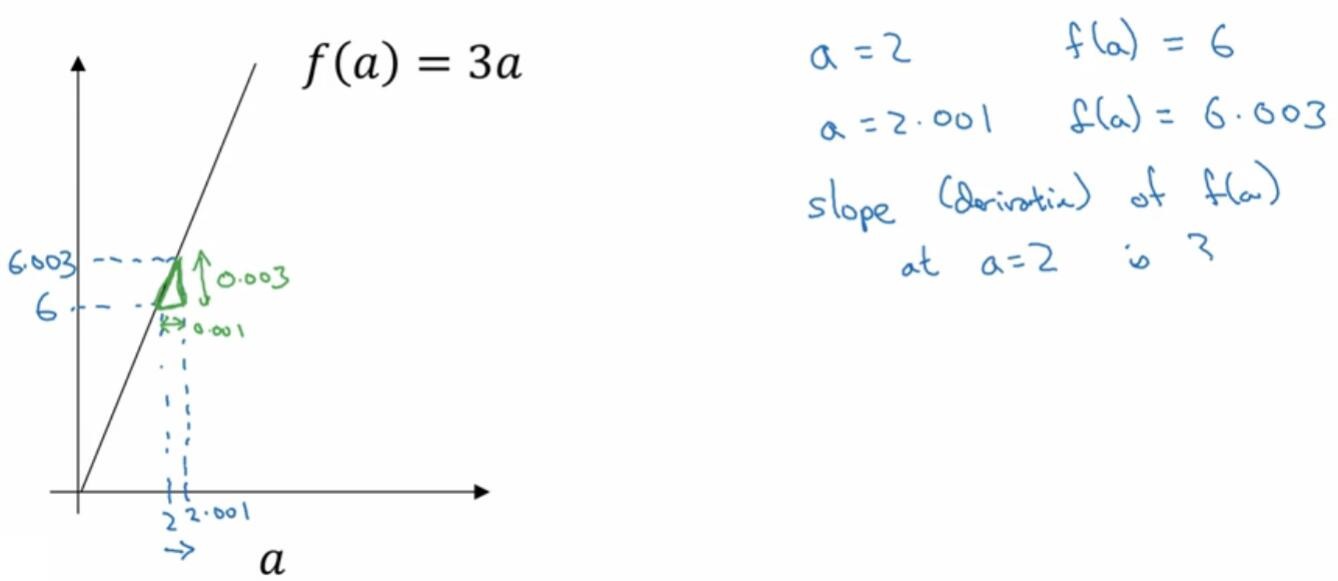 f(a) = 3a
6.003
0.003
6
0.001
2 2.001
→
a
a = 2 f(a) = 6
a = 2.001 f(a) = 6.003
slope (derivative) of f(a)
at a=2 is 3